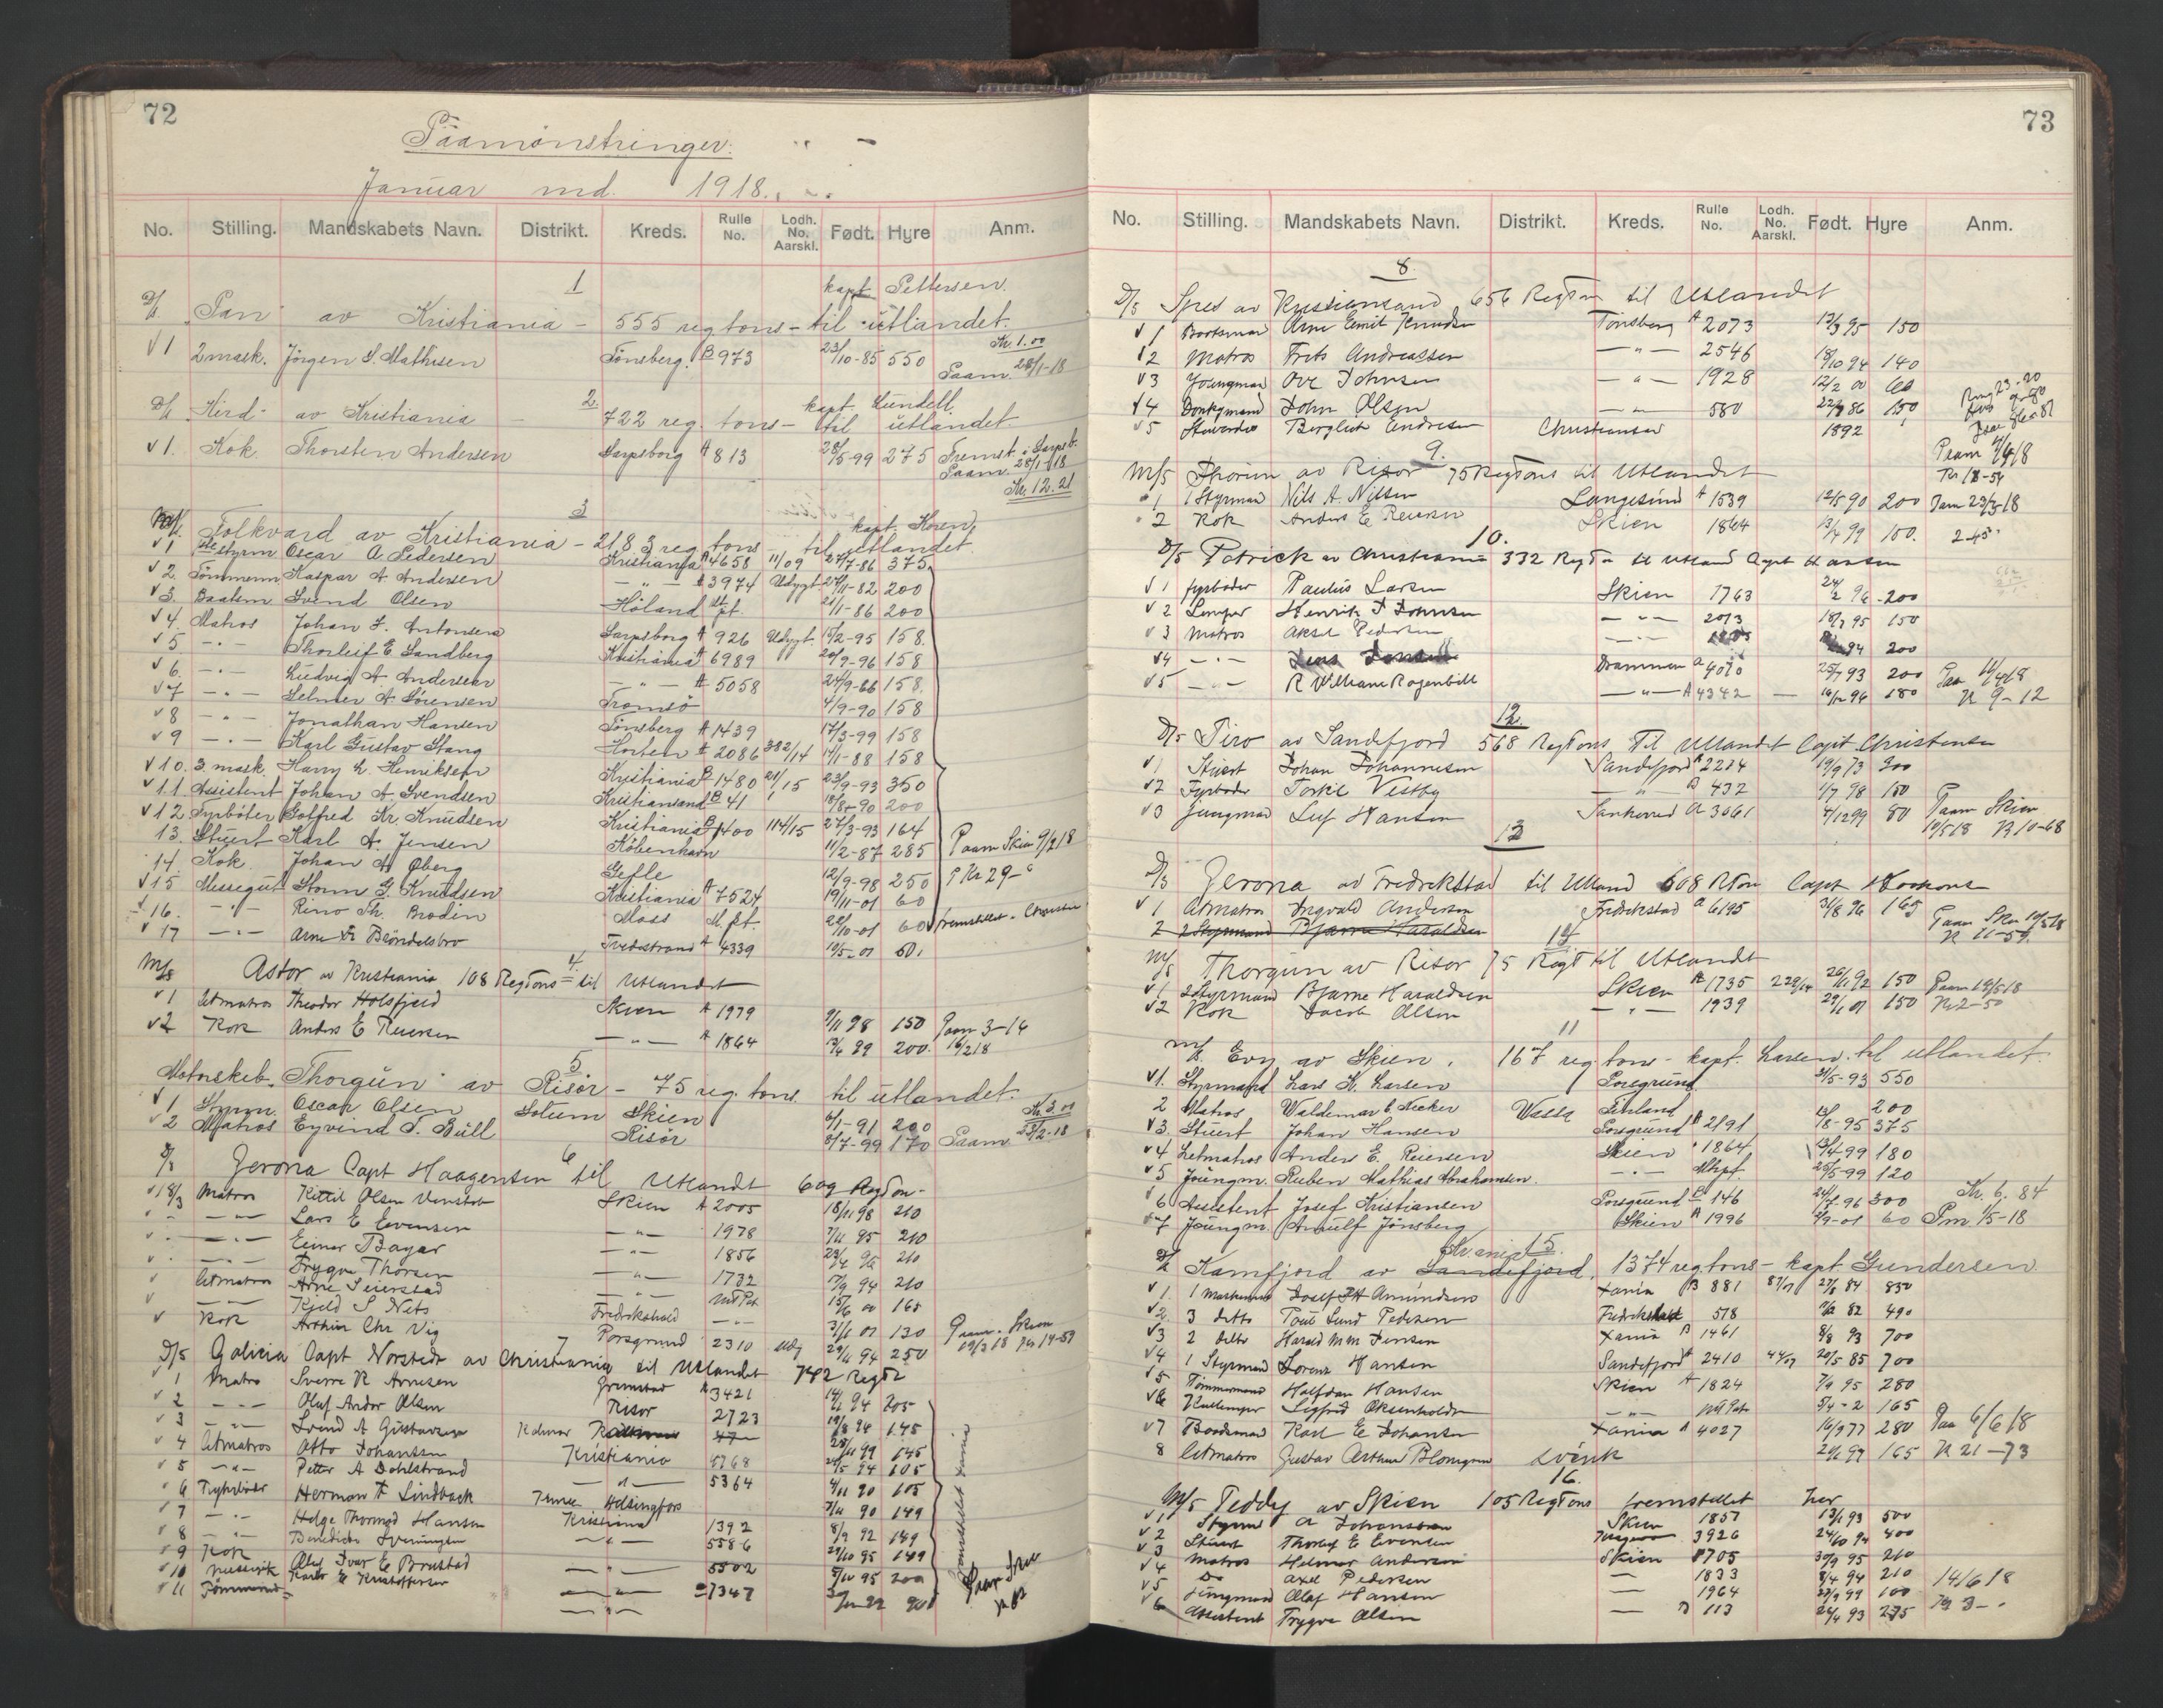 72
Paamönstringer.
Januar md. 1918.
No. Stilling. Mandskabets Navn. Distrikt. Kreds. Rulle No. Lodh. No. Aarskl. Født. Hyre Anm.
1 kapt Pettersen.
D/s "Pan" av Kristiania - 555 reg tons - til utlandet.
Kr. 1.00
1 2 mask. Jörgen S. Mathisen Tönsberg. B 973 23/10-85 550 Paam. 28/1-18
2. kapt. Lundell.
D/s "Hird" av Kristiania - 722 reg. tons - til utlandet
1. Kok Thorsten Andersen Sarpsborg A 813 28/5-99 275 Fremst. i Sarpsb.
Paam. 28/1-18
Kr. 12.21
3 kapt. Koren.
Folkvard av Kristiania - 2183 reg tons til utlandet.
1 styrm Oscar A. Pedersen Kristiania A 4658 11/09 27/7-86 375
2. Tömmerm Kaspar A. Andersen - " - A 3974 Udygt 27/11-82 200
3. Baatsm Svend Olsen Höland 21/1-86 200
4. Matros Johan F. Antonsen Sarpsborg A 926 Udygt 15/2-95 158.
5 - " - Thorleif E. Sandberg Kristiania A 6989 20/9-96 158
6. - " - Ludvig A. Andersen - " - A 5058 24/9-66 158.
7 - " - Selmer A. Sörensen Tromsö 4/9-90 158
8 - " - Jonathan Hansen Tönsberg A 1439 17/3-99 158
9 - " - Karl Gustav Stang Horten A 2086 382/14 14/1-88 158
10. 3. mask. Harry L. Henriksen Kristiania B 1480 21/15 23/9-93 350
11. Assistent Johan A. Svendsen Kristiansand B 41 18/8-90 200
12 Fyrböter Gotfred Kr. Knudsen Kristiania B 1400 114/15 27/3-93 164
13. Stuert Karl A. Jensen Köbenhavn 11/2-87 285 Paam Skien 9/2 18
14. Kok Johan A. Öberg Gefle 12/9-98 250 Kr 29-
15 Messegut Storm G. Knudsen Kristiania A 7524 19/11-01 60
16. - " - Rino Th. Brodin Moss M.pt. 22/10-01 60 fremstillet
17 - " - Arne Bröndelsbro Tvedestrand A 4339 10/5-01 60.
4.
M/s Astor av Kristiania 108 Regtons til Utlandet
1 Letmatros Theodor Holsfjeld Skien A 1979 9/11 98 150 Paam 3-14
2 Kok Anders E Reiersen - " - A 1864 13/4 99 200. 16/2 18
5
Motorskib. "Thorgun" av Risör - 75 reg. tons. til utlandet.
Kr. 3.00
1 Styrm. Oscar Olsen Solum Skien 6/1-91 200
2 Matros Eyvind S. Bull Risör 8/7-99 170 Paam 23/2-18
6
D/s Gerona Capt Haagensen til Utlandt 609 Regton
18/3 Matros Kittil Olsen Venstøb Skien A 2005 18/11 98 210
- " - Lars E Evensen - " - 1978 7/11 95 210
- " - Einar Bayer - " - 1856 23/4 96 210
- " - Trygve Thorsen - " - 1732 94 210
Letmatros Arne Seierstad 15/6 00 165
- " - Kjeld S Nets Fredrikshald - " - 3/1 01 130
Kok Arthur Chr Vig Porsgrund 2310 29/11 94 250 Paam. Skien 19/3 18 Kr 14-59
7
D/s Galicia Capt Norstedt av Christiania til Utlandet 742 Regt
1 Matros Sverre R Arnesen Grimstad A 3421 14/11 94 205
2 - " - Oluf Andor Olsen Risør 2723 19/8 94 145
3 - " - Svend A Gustavsen Kalmar 28/11 99 145
4 Letmatros Otto Johansen Kristiania 4768 94 105
5 - " - Petter A Dahlstrand - " - 5364 4/11 20 105
6 Fyrbøder Herman F Lindback Helsingfors 7/11 90 149
7 - " - Helge Thormod Hansen Kristiania 1392 8/9 92 149
8 - " - Benedicto - " - 5586 29/10 95 149
9 Kok Olaf Ivar E Brustad - " - 5502 5/10 95 200
10 Karlo E Kristoffersen - " - 7347
11 Tömmermd - " -
73
No. Stilling. Mandskabets Navn. Distrikt. Kreds. Rulle No. Lodh. No. Aarskl. Født. Hyre Anm.
8
D/s Spes av Kristiansand 656 Regton til Utlandet
1 Baatsmand Arne Emil Knudsen Tönsberg A 2073 12/3 95 150
2 Matros Frits Andreassen - " - 2546 18/10 94 140
3 Youngmand Ove Johnsen - " - 1928 12/2 00 60
4 Donkymand John Olsen - " - 580 22/9 86 150
5 Stuerdie Bergliot Andresen Christiansand 1892 Paam 4/4 18
9.
M/s Thorunn av Risør 75 Regtons til Utlandet
1 1 Styrmand Nils A. Nilsen Langesund A 1539 12/5 90 200 Paam 23/3-18
2 Kok Anders E Reiersen Skien 1864 13/4 99 150. 2-45
10.
D/s Patrick av Christiania 332 Regto til Utland Capt Hansen
1 fyrbøder Paulus Larsen Skien 1763 24/2 96 200
2 Lemper Henrik J Johnsen - " - 2073 18/7 95 150
3 Matros Aksel Pedersen - " - 94 200
4 - " - Drammen A 4070 25/7 93 200 Paa 11/4 18
5 - " - R William Rogenbill - " - A 4342 - 16/12 96 180 Kr 9-12
12.
D/s Tiro av Sandefjord 568 Regtons Til Utlandet Capt. Christensen
1 Stuert Johan Johannesen Sandefjord A 2284 19/9 73 300
2 Fyrbøder Torkil Vestby - " - B 432 1/7 98 150
3 Jungmand Leif Hansen Sankerød A 3061 4/12 99 80 Paam Skien 10/5 18 Kr 10-68
13
D/s Gerona av Fredrikstad til Utland 608 Rton Capt Haakonsen
1 Letmatros Ingvald Andersen Fredrikstad A 6195 31/8 96 165 Paam Skien 10/5 18
2 2 Styrmand Bjarne Haraldsen Kr 11-59
14
M/s Thorgun av Risør 75 Regt til Utlandt
1 2 Styrmand Bjarne Haraldsen Skien A 1735 229/14 26/11 92 150 Paam 19/5 18
2 Kok Jacob Olsen - " - 1939 29/6 01 150 Kr 2-50
11
M/s. Evy av Skien. 167 reg tons - kapt. Larsen. til utlandet.
1. Styrmand Lars K. Larsen Porsgrund 21/5-93 550
2 Matros Waldemar E. Necker Wasa Finland 200
3. Stuert Johan Hansen Porsgrund A 2191 13/8-95 375
4 Letmatros Anders E. Reiersen Skien " 1864 13/4-99 180
5 Jüngm. Ruben Mathias Abrahamsen. - " - Mtpf. 25/5-99 120
6 Assistent Josef Kristiansen Porsgrund B 146 24/7-96 300 Kr. 6.84
7 Jüngm. Arnulf Jönsberg Skien A 1996 2/9-01 60 Pm 1/5-18
Kr.ania 15.
D/s Kamfjord av Sandefjord. 1374 reg tons - kapt. Gundersen
1. 1 Maskinmd Josef H Amundsen Xania B 881 87/07 27/8 84 850
2. 3 detto Poul Lund Pedersen Fredrikshald 578 82 490
3 2 detto Harald M M Jensen Xania B 1461 8/8 93 700
4 1 Styrmand Lorenz Hansen Sandefjord A 2410 44/07 20/5 85 700
5 Tömmermand Halfdan Hansen Skien A 1824 7/9 95 280
6 Kullemper Sigfrid Oksenholdt - " - 5/4-2 165
7 Baadsmand Karl E Johansen Xania A 4027 16/9 77 280 Paa 6/6 18
8 Letmatros Gustav Arthur Blomgren svensk 21/6 97 165 Kr 21-73
16.
M/s Teddy av Skien 105 Regtons fremstillet her
1 Styrmd A Johanssen Skien 1857 13/1 93 500
2 Stuert Thorleif E Evensen 3926 24/10 94 400
3 Matros Helmer Andersen Skien 1705 30/9 95 210
4 Do Axel Pedersen - 1833 8/4 94 210
5 Jungmand Olaf Hansen - 1964 23/9 99 100 14/6 18
6 Assistent Trygve Olsen - B 113 24/4 93 275 Kr 3-